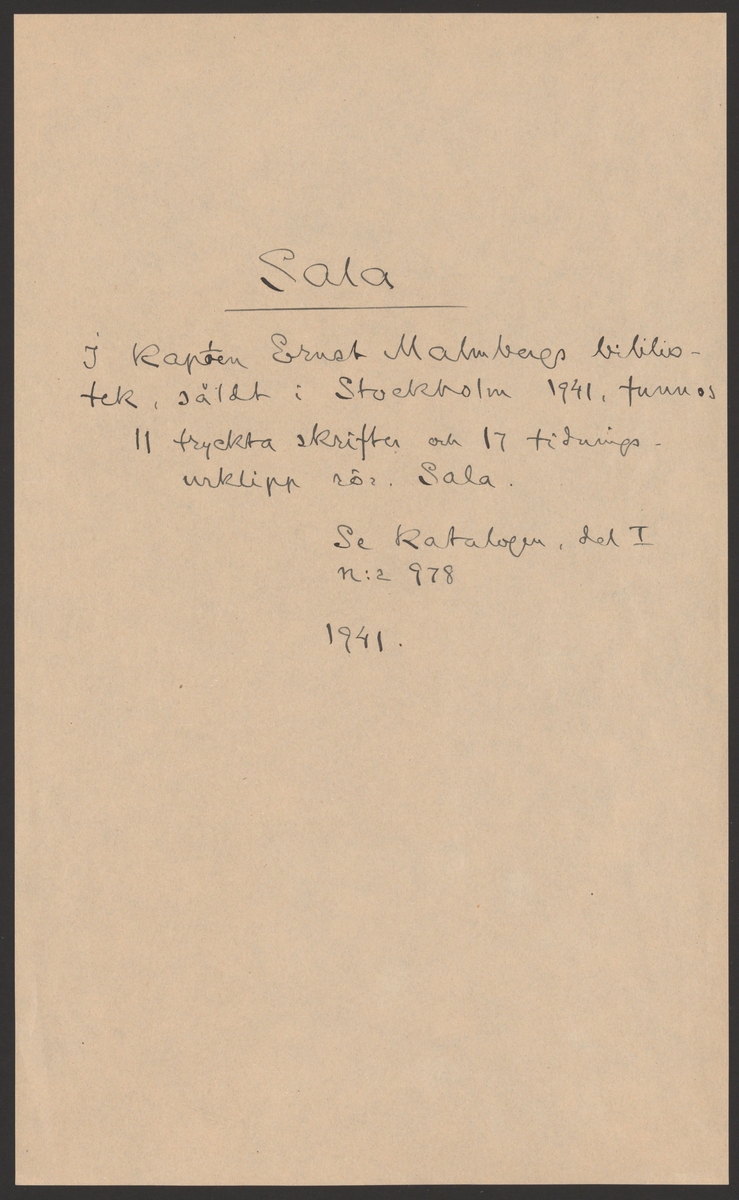 Sala
I Kapten Ernst Malmbergs biblio-
tek, såldt i Stockholm 1941, funnos
11 tryckta skrifter och 17 tidnings-
urklipp rör. Sala.
Se Katalogen, del I
n:r 978
1941.